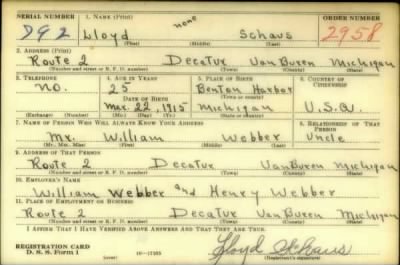 SERIAL NUMBER 1. NAME (Print) ORDER NUMBER
D92 Lloyd none Schaus 2958
(First) (Middle) (Last)
2. ADDRESS (Print)
Route 2 Decatur Van Buren Michigan
(Number and street or R. F. D. number) (Town) (County) (State)
3. TELEPHONE 4. AGE IN YEARS 5. PLACE OF BIRTH 6. COUNTRY OF CITIZENSHIP
no. 25 Benton Harbor
DATE OF BIRTH
Mar. 22, 1915 Michigan U.S.A.
(Exchange) (Number) (Mo.) (Day) (Yr.) (State or country)
7. NAME OF PERSON WHO WILL ALWAYS KNOW YOUR ADDRESS 8. RELATIONSHIP OF THAT PERSON
Mr. William Webber Uncle
(Mr., Mrs., Miss) (First) (Middle) (Last)
9. ADDRESS OF THAT PERSON
Route 2 Decatur Van Buren Michigan
(Number and street or R. F. D. number) (Town) (County) (State)
10. EMPLOYER'S NAME
William Webber and Henry Webber
11. PLACE OF EMPLOYMENT OR BUSINESS
Route 2 Decatur Van Buren Michigan
(Number and street or R. F. D. number) (Town) (County) (State)
I AFFIRM THAT I HAVE VERIFIED ABOVE ANSWERS AND THAT THEY ARE TRUE.
REGISTRATION CARD
D. S. S. Form 1 (over) Lloyd Schaus
(Registrant's signature)